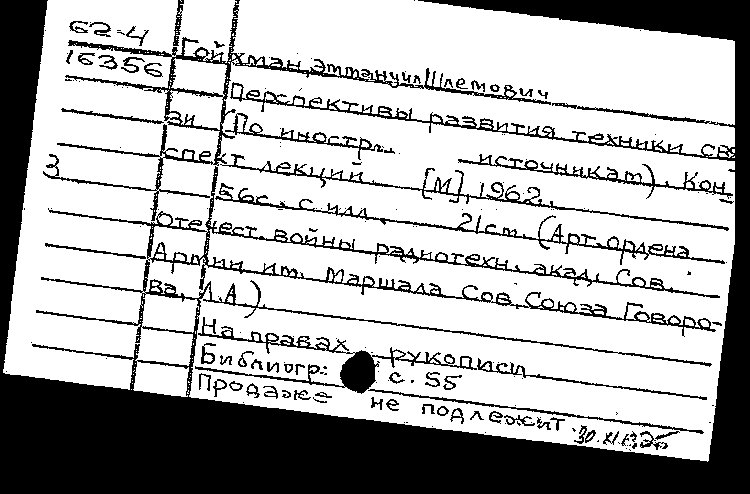 62-4
16356
Гойхман, Эммануил Шлемович
Перспективы развития техники свя
зи (По иностр. источникам). Кон
спект лекции. [М], 1962.
3
56с. с илл. 21см. (Арт. ордена
Отечест. войны радиотехн. акад. Сов.
Армии им. Маршала Сов. Союза Говоро-
ва, Л.А)
На правах рукописи
Библиогр: с. 55
Продаже не подлежит